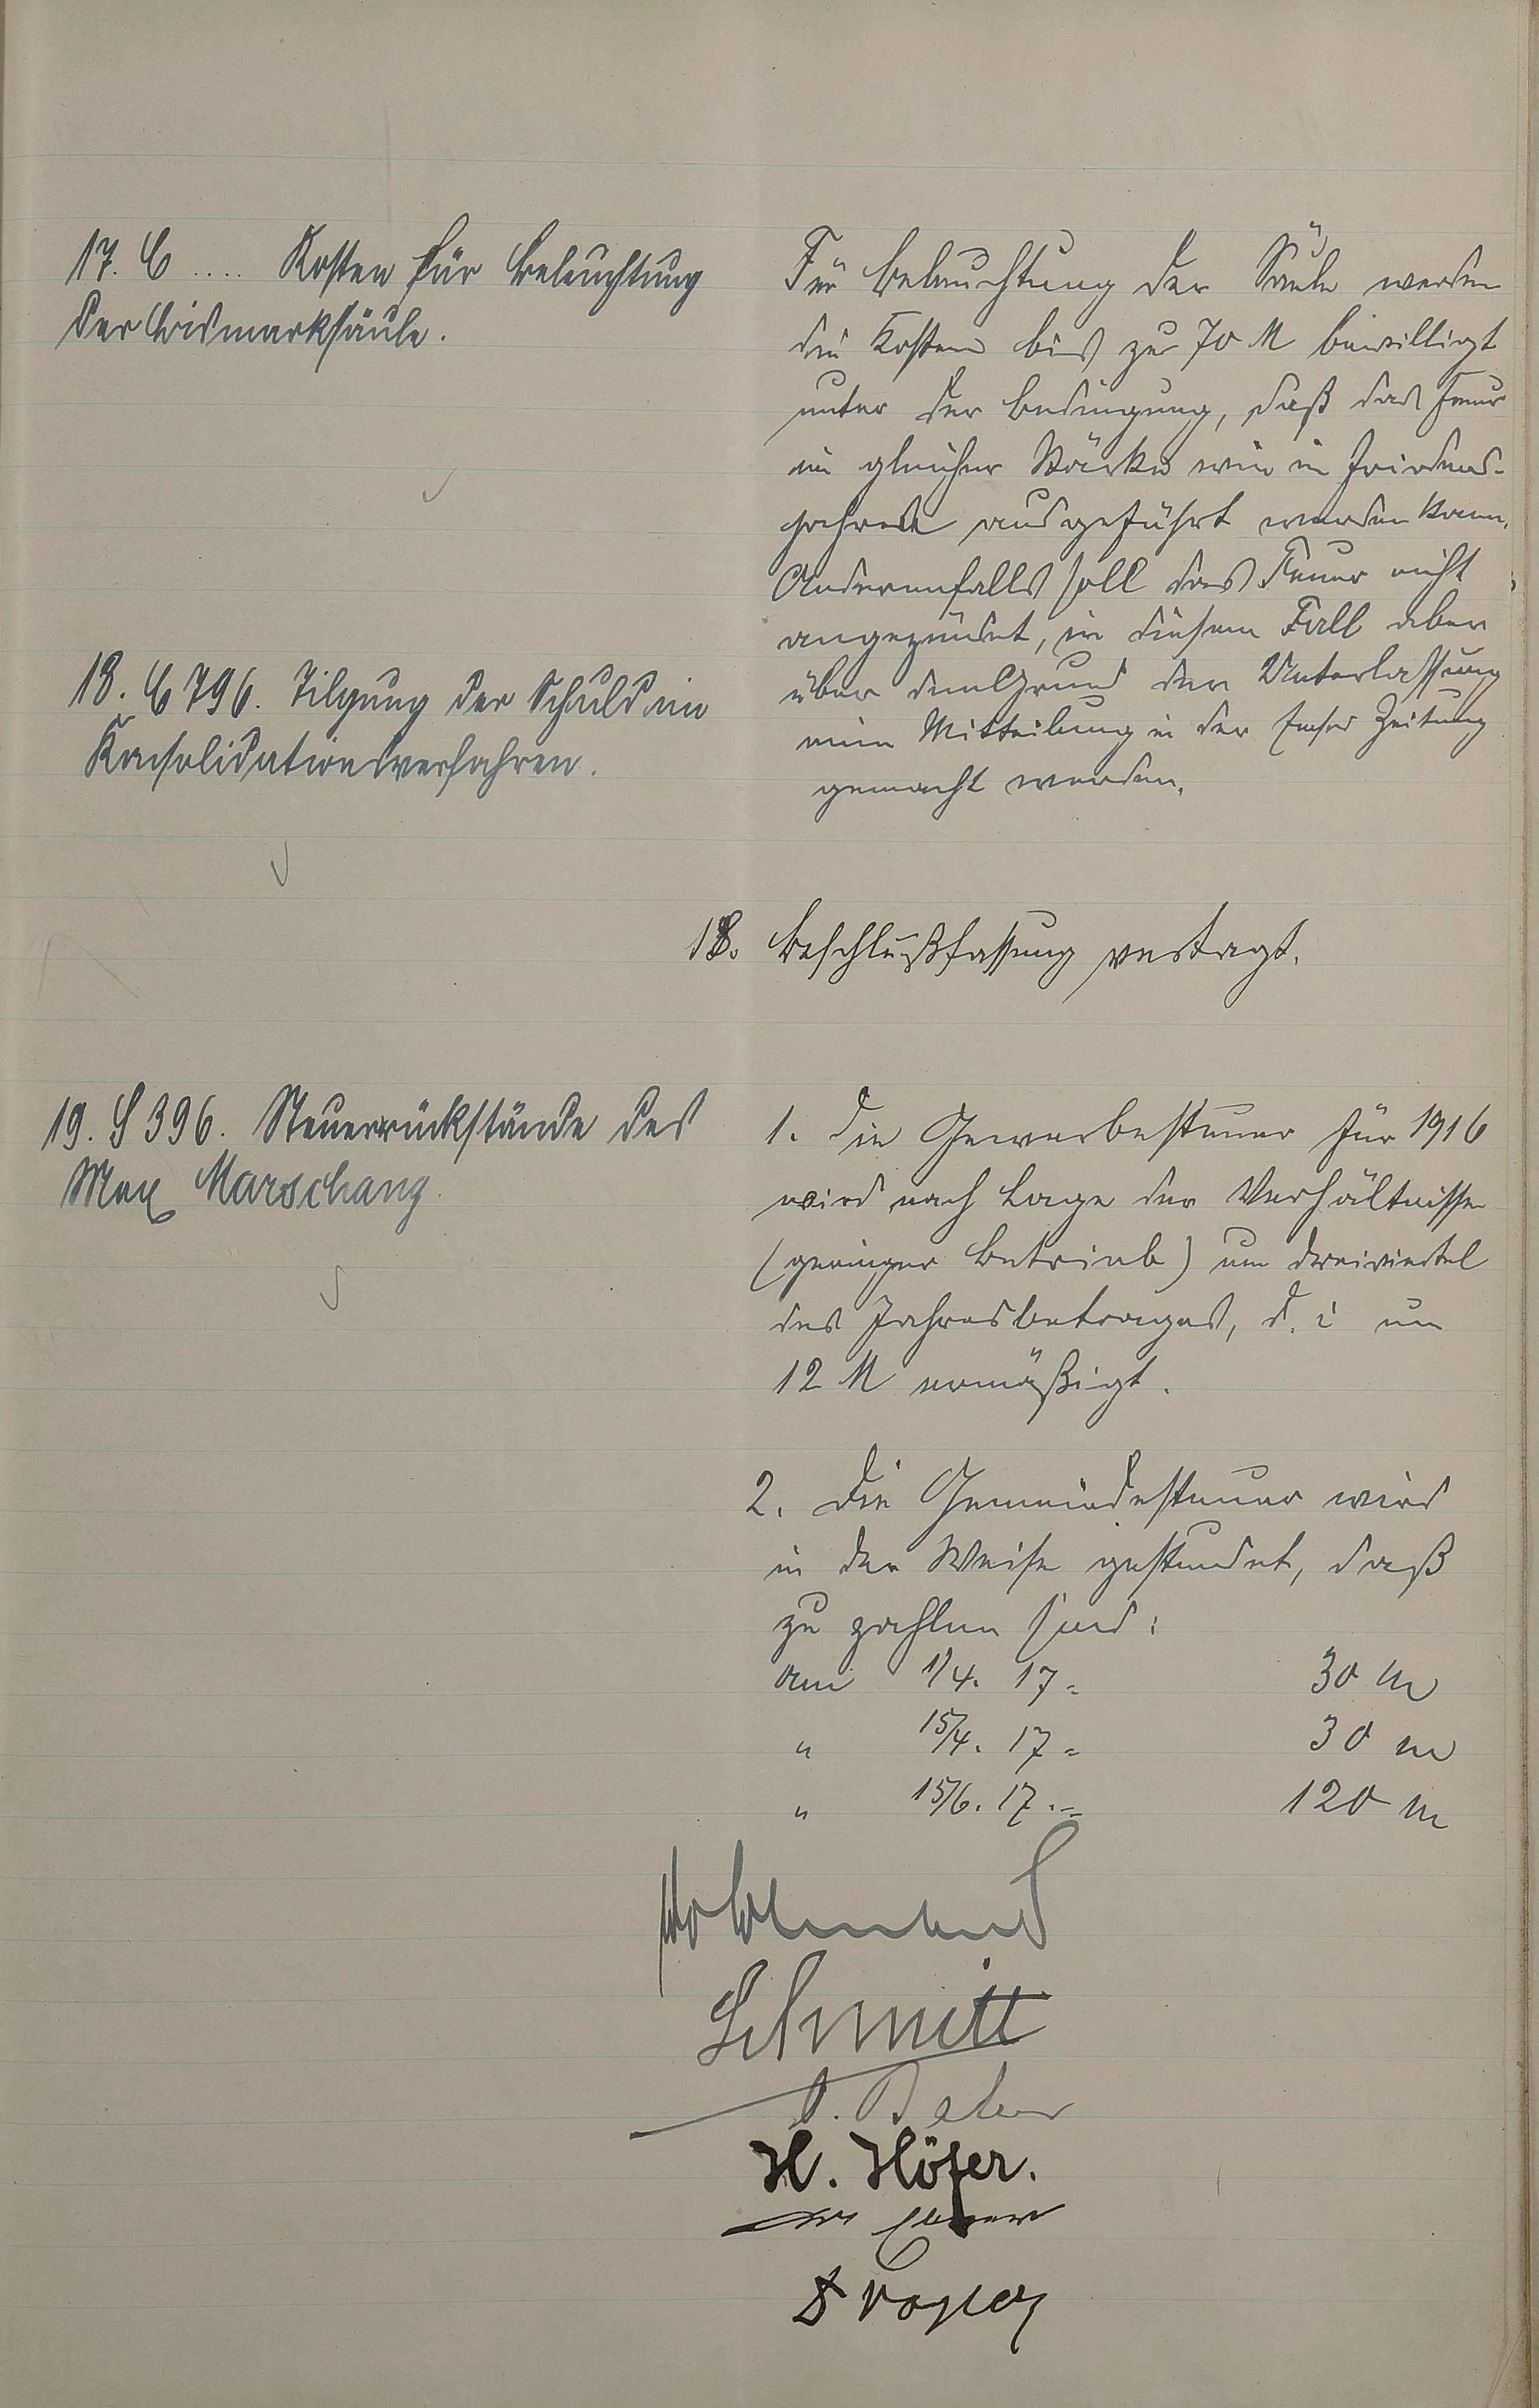 17. C .... Kosten für Beleuchtung
der Bismarksäule.
Für Beleuchtung der Säule werden
die Kosten bis zu 70 M bewilligt
unter der Bedingung, daß das Feuer
in gleicher Stärke wie in Friedens-
jahren ausgeführt werden kann.
Anderenfalls soll das Feuer nicht
angezündet, in diesem Fall aber
über den Grund der Unterlassung
eine Mitteilung in der Emser Zeitung
gemacht werden.
18. C 796. Tilgung der Schuld im
Konsolidationsverfahren.
18. Beschlußfassung vertagt.
19. S 396. Steuerrückstände des
Max Marschang.
1. Die Gewerbesteuer für 1916
wird nach Lage der Verhältnisse
(geringer Betrieb) um dreiviertel
des Jahresbetrages, d. i um
12 M ermäßigt.
2. Die Gemeindesteuer wird
in der Weise gestundet, daß
zu zahlen sind:
am 1/4. 17 = 30 M
" 15/4. 17 = 30 M
" 15/6. 17. = 120 M
Schmitt
H. Höfer.